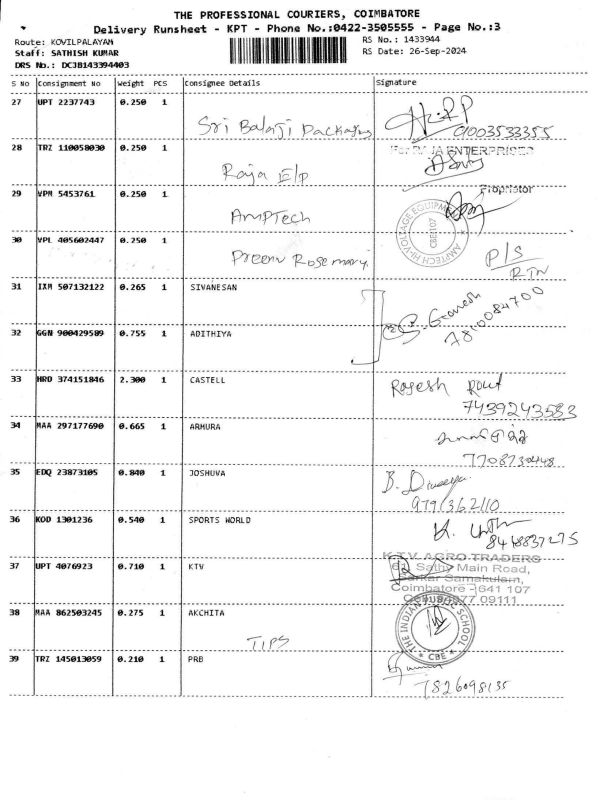 THE PROFESSIONAL COURIERS, COIMBATORE
Delivery Runsheet - KPT - Phone No.:0422-3505555 - Page No.:3
Route: KOVILPALAYAM
RS No.: 1433944
Staff: SATHISH KUMAR
RS Date: 26-Sep-2024
DRS No.: DCJB143394403
S No Consignment No Weight PCS Consignee Details Signature
27 UPT 2237743 0.250 1
Sri Balaji Packaging
28 TRZ 110058030 0.250 1
Raja E/p
ENTERPRISES
29 VPM 5453761 0.250 1
Proprietor
AmpTech
AMPTECH HI-VOLTAGE EQUIPMENT
CBE-107
30 VPL 405602447 0.250 1
Preem Rosemary
P/S
RTN
31 IXM 507132122 0.265 1 SIVANESAN
Ganesh
7810084700
32 GGN 900429589 0.755 1 ADITHIYA
33 HRD 374151846 2.300 1 CASTELL
Rajesh Rout
7439243583
34 MAA 297177690 0.665 1 ARMURA
35 EDQ 23873105 0.840 1 JOSHUVA
B.
36 KOD 1301236 0.540 1 SPORTS WORLD
8418837275
37 UPT 4076923 0.710 1 KTV
K.T.V AGRO TRADERS
Sathy Main Road,
Sarkar Samakulam,
Coimbatore - 641 107
09111
38 MAA 862503245 0.275 1 AKCHITA
TIPS
THE INDIAN PUBLIC SCHOOL
CBE
39 TRZ 145013059 0.210 1 PRB
7826098135